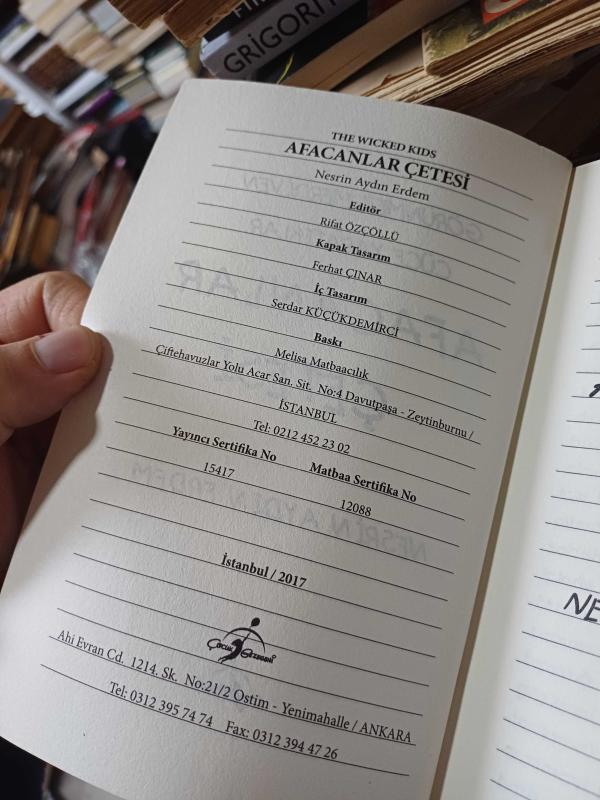 GRİGORİY
THE WICKED KIDS
AFACANLAR ÇETESİ
Nesrin Aydın Erdem
Editör
Rifat ÖZÇÖLLÜ
Kapak Tasarım
Ferhat ÇINAR
İç Tasarım
Serdar KÜÇÜKDEMİRCİ
Baskı
Melisa Matbaacılık
Çiftehavuzlar Yolu Acar San. Sit. No:4 Davutpaşa - Zeytinburnu /
İSTANBUL
Tel: 0212 452 23 02
Yayıncı Sertifika No Matbaa Sertifika No
15417 12088
İstanbul / 2017
Çocuk Gezegeni
Ahi Evran Cd. 1214. Sk. No:21/2 Ostim - Yenimahalle / ANKARA
Tel: 0312 395 74 74 Fax: 0312 394 47 26
NE